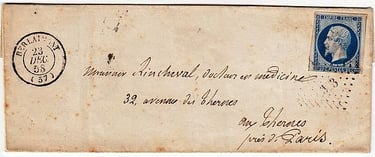 BERLAIMONT
23
DEC
58
(57)
EMPIRE FRANC
Monsieur Rincheval, docteur en medicine
32, avenue des Thernes
aux Thernes
près de Paris.